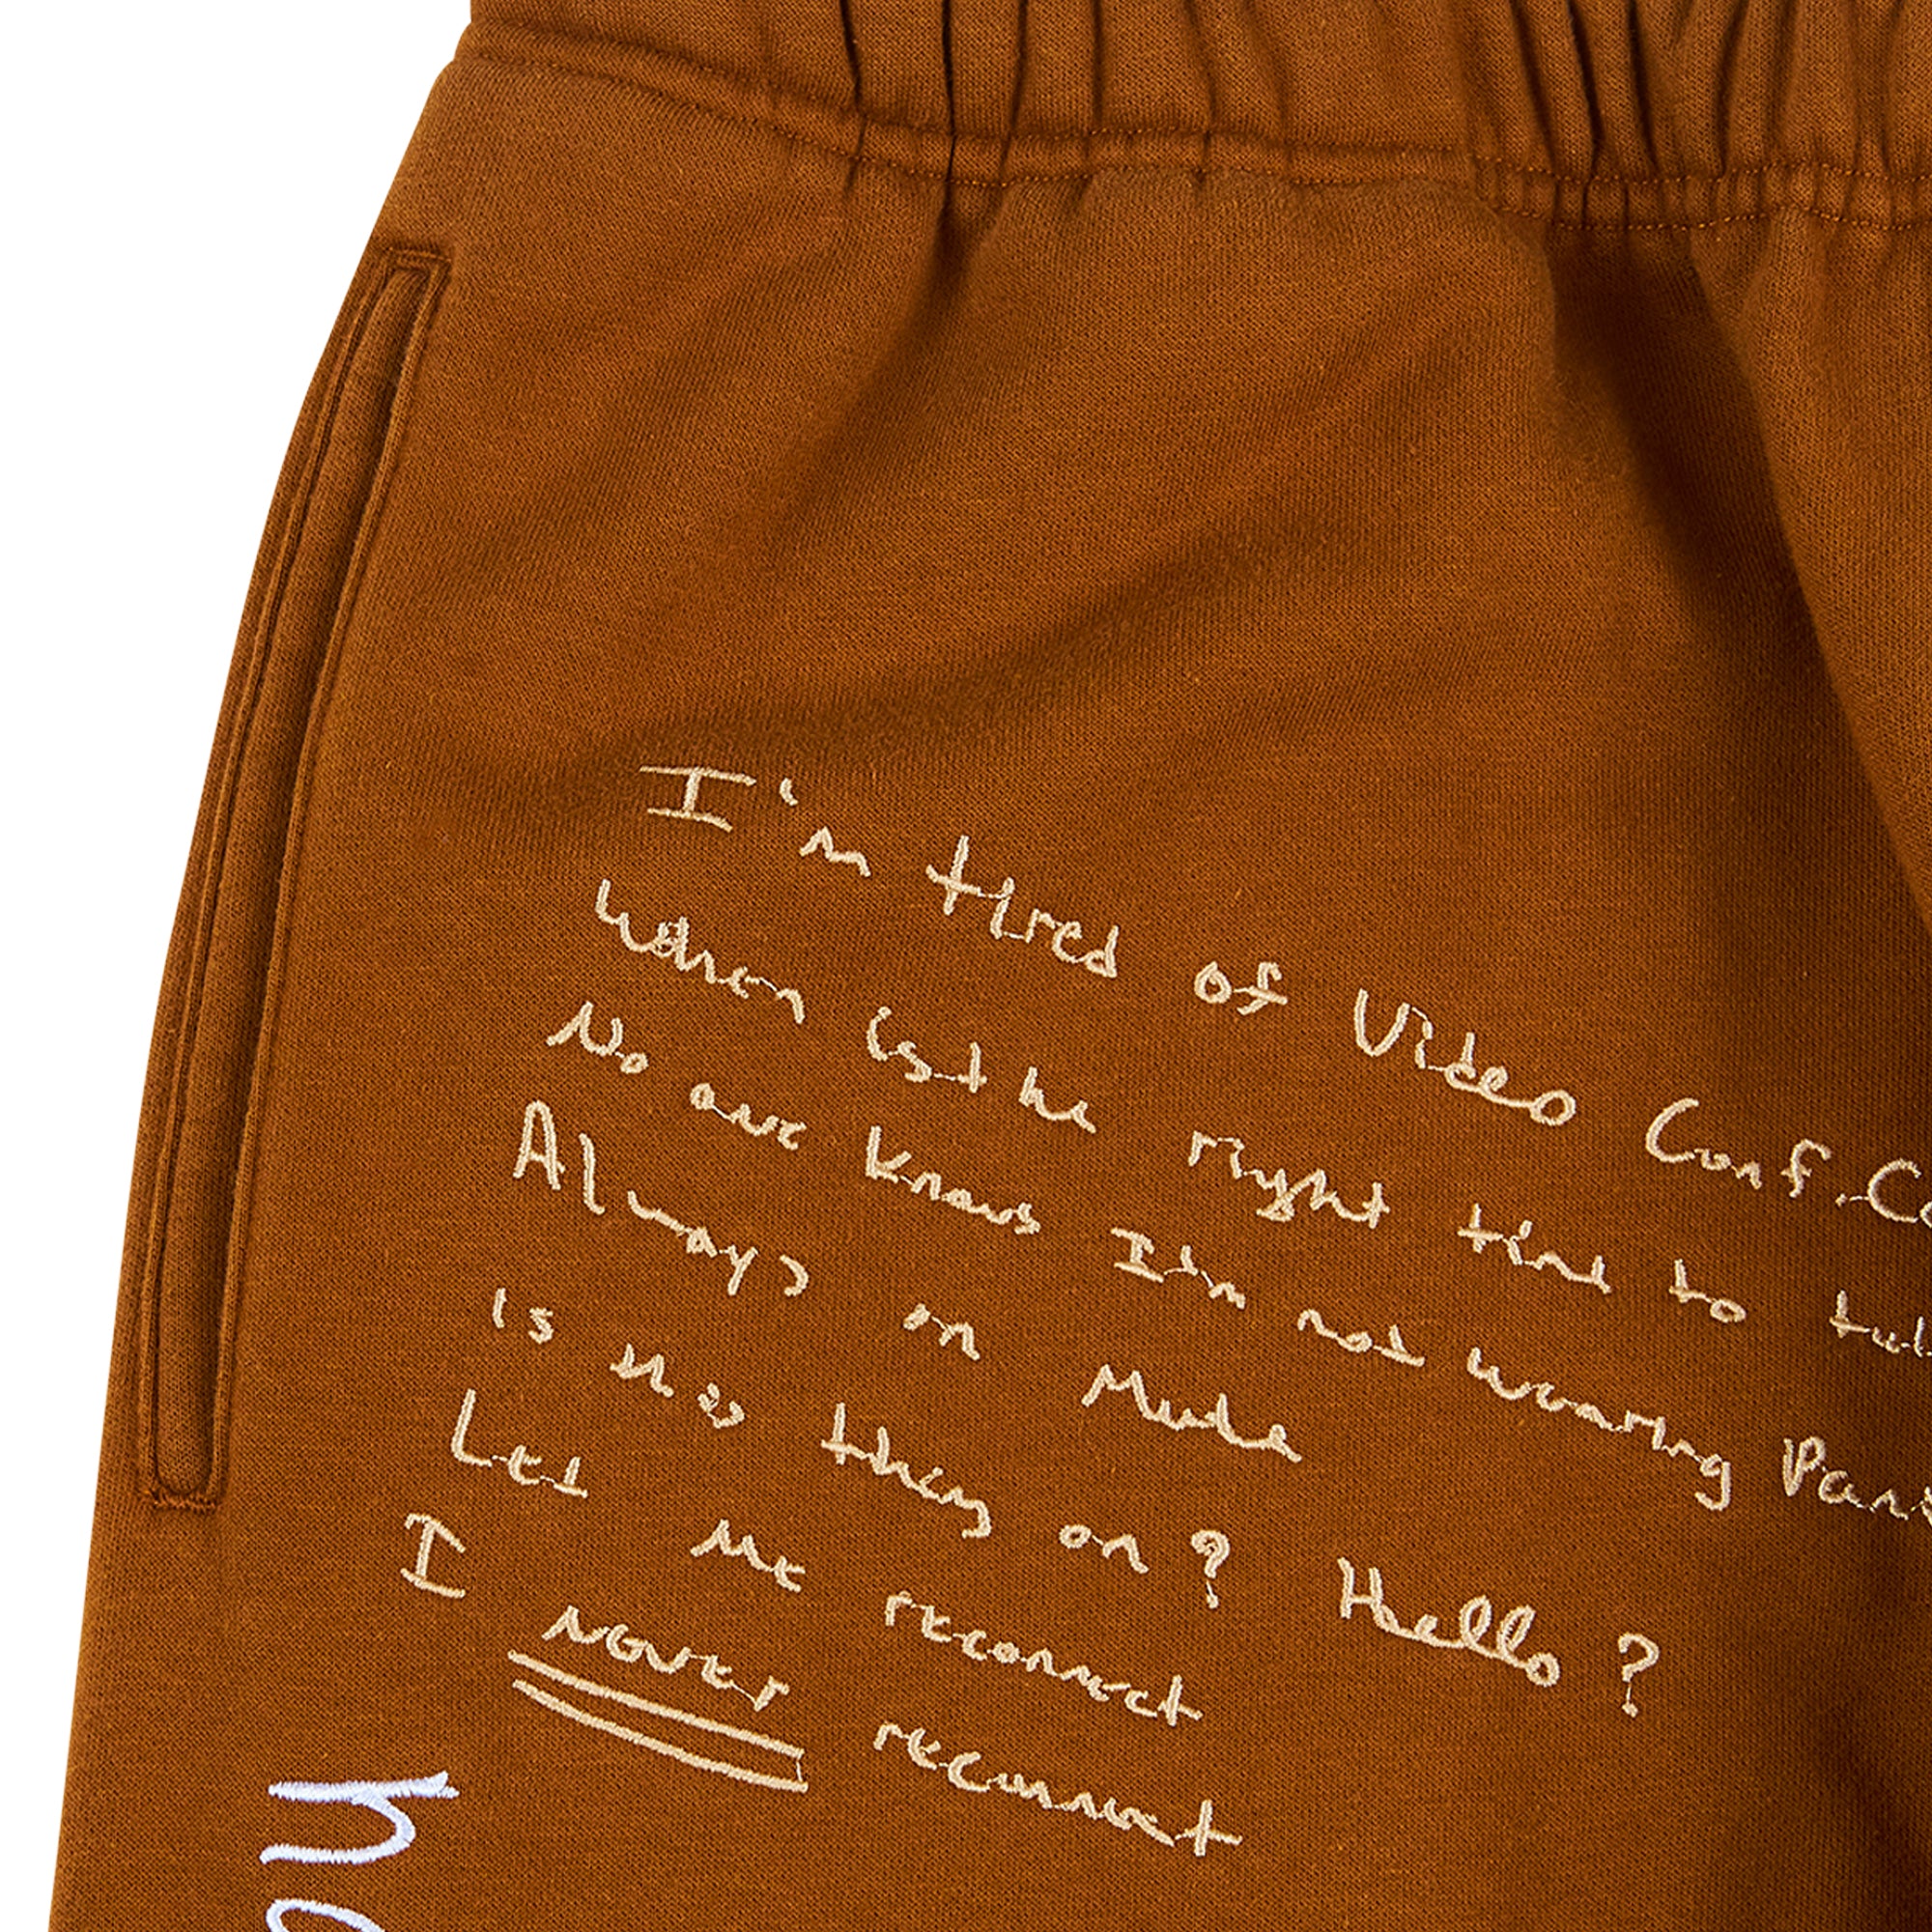 I'm tired of Video Conf. Ca
When is the right time to tell
No one knows I'm not wearing Pan
Always on Mute
is this thing on? Hello?
Let me reconnect
I never reconnect
ha